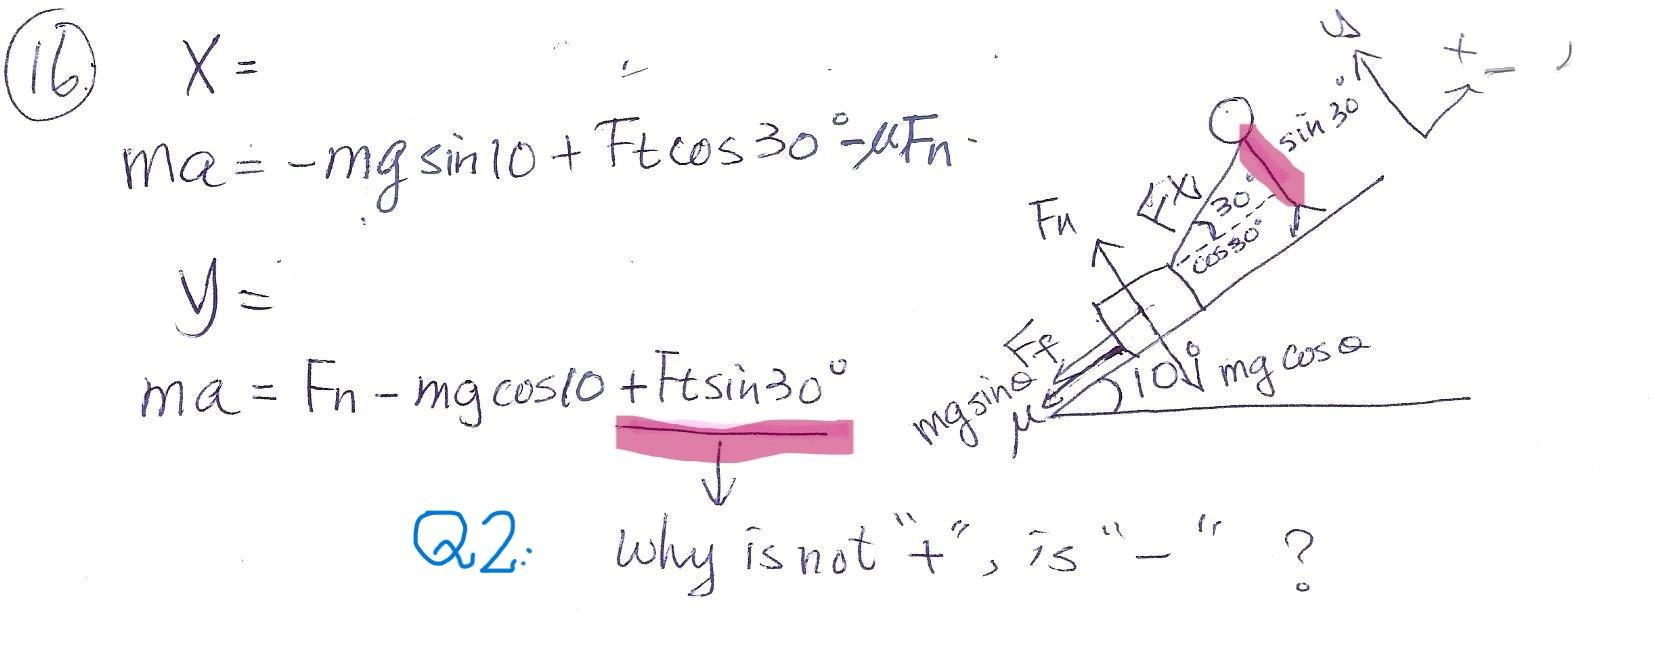 16.
X =
ma = -mg sin10 + Ft cos30° - μFn.
y =
ma = Fn - mg cos10 + Ft sin30°
Q2: Why is not "+", is "-" ?
y
+
sin 30°
30°
cos30°
Fn
Ff
mg sinθ
μ
10°
mg cosθ